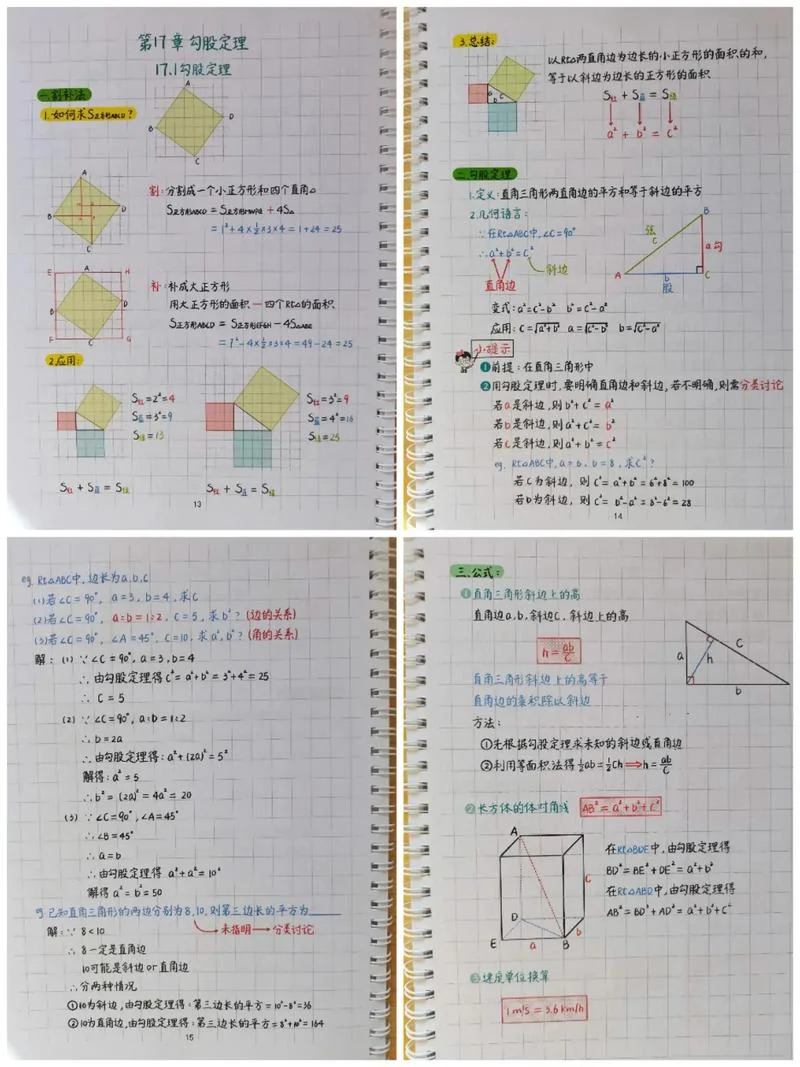 第17章勾股定理
17.1勾股定理
一.割补法
1.如何求S正方形ABCD?
A
B
D
C
A
B
D
C
割:分割成一个小正方形和四个直角△
+ 4S△
= 1²+4×½×3×4 = 1+24 = 25
E
A
H
B
D
F
C
G
补:补成大正方形
用大正方形的面积—四个Rt△的面积
S正方形ABCD = S正方形EFGH − 4S△ABE
−4×½×3×4 = 49−24 = 25
2.应用:
S红=2²=4
S蓝=3²=9
S绿=13
S红=3²=9
S蓝=4²=16
S绿=25
S红 + S蓝 = S绿
S红 + S蓝 = S绿
13
3.总结:
以Rt△两直角边为边长的小正方形的面积的和,
等于以斜边为边长的正方形的面积
S红 + S蓝 = S绿
a² + b² = c²
a
b
c
二.勾股定理
1.定义:直角三角形两直角边的平方和等于斜边的平方
2.几何语言:
∵在Rt△ABC中,∠C=90°
∴a²+b²=c²
斜边
直角边
B
弦
c
a勾
A
b
C
股
变式:a²=c²−b² b²=c²−a²
应用:c=√a²+b² a=√c²−b² b=√c²−a²
小提示
①前提:在直角三角形中
②用勾股定理时,要明确直角边和斜边,若不明确,则需分类讨论
若a是斜边,则b²+c²=a²
若b是斜边,则a²+c²=b²
若c是斜边,则a²+b²=c²
eg. Rt△ABC中,a=6,b=8,求c²?
若c为斜边,则c²=a²+b²=6²+8²=100
若b为斜边,则c²=b²−a²=8²−6²=28
14
eg. Rt△ABC中,边长为a,b,c
(1)若∠C=90°, a=3, b=4,求C
(2)若∠C=90°, a:b=1:2, c=5,求b²?(边的关系)
(3)若∠C=90°, ∠A=45°, c=10,求a²,b²?(角的关系)
解:(1)∵∠C=90°,a=3,b=4
∴由勾股定理得c²=a²+b²=3²+4²=25
∴c=5
(2)∵∠C=90°,a:b=1:2
∴b=2a
∴由勾股定理得:a²+(2a)²=5²
解得:a²=5
∴b²=(2a)²=4a²=20
(3)∵∠C=90°,∠A=45°
∴∠B=45°
∴a=b
∴由勾股定理得 a²+a²=10²
解得a²=b²=50
已知直角三角形的两边分别为8,10,则第三边长的平方为
解:∵8<10
未指明→分类讨论
∴8一定是直角边
10可能是斜边or直角边
∴分两种情况
①10为斜边,由勾股定理得:第三边长的平方=10²−8²=36
②10为直角边,由勾股定理得:第三边长的平方=8²+10²=164
15
三.公式:
①直角三角形斜边上的高
直角边a,b,斜边c,斜边上的高
h=ab/c
a
h
c
b
直角三角形斜边上的高等于
直角边的乘积除以斜边
方法:
①先根据勾股定理求未知的斜边或直角边
②利用等面积法得½ab=½ch⟹h=ab/c
②长方体的体对角线 AB²=a²+b²+c²
A
C
D
b
E
a
B
在Rt△BDE中,由勾股定理得
BD²=BE²+DE²=a²+b²
在Rt△ABD中,由勾股定理得
AB²=BD²+AD²=a²+b²+c²
③速度单位换算
1m/s=3.6km/h